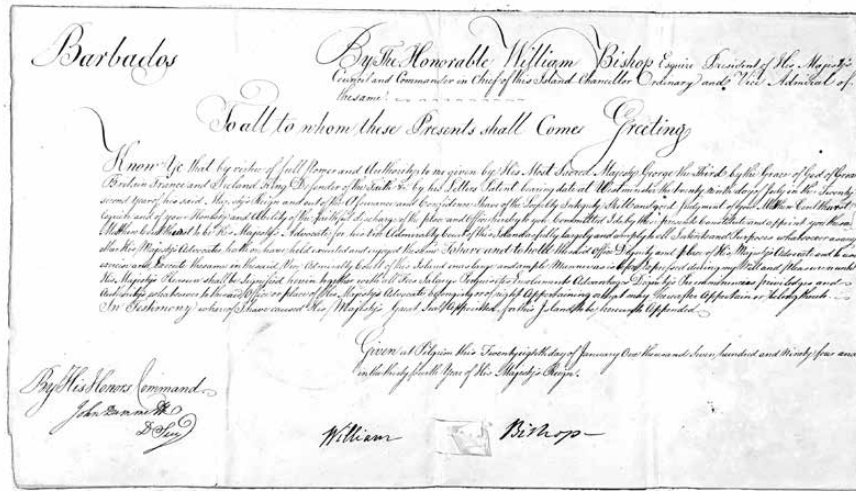 Barbados
By The Honorable William Bishop Esquire President of His Majesty's
Council and Commander in Chief of this Island Chancellor Ordinary and Vice Admiral of
the same
To all to whom these Presents shall Come Greeting
Know Ye that by virtue of full Power and Authority to me given by His Most Sacred Majesty George the Third by the Grace of God of Great
Britain France and Ireland King Defender of the Faith &c by his Letters Patent bearing date at Westminster the twenty ninth day of July in the Twenty
second year of his said Majesty's Reign and out of the Assurance and Confidence I have of the Loyalty Integrity Skill and good Judgment of you
Esquire and of your Honesty and Ability of the faithful discharge of the place and Office hereby to you Committed I do by these presents Constitute and appoint you the said
to be His Majesty's Advocate for his Vice Admiralty Court of this Island as fully largely and amply to all Intents and Purposes whatsoever as any
other His Majesty's Advocate hath have held executed and enjoyed the same To have and to hold the said office Dignity and place of His Majesty's Advocate and to
exercise and Execute the same in the said Vice Admiralty Court of this Island in as large and ample Manner as is before expressed during my Will and Pleasure or until
His Majesty's Pleasure shall be signified herein together with all Fees Salary Perquisites Emoluments Advantages privileges and
Authoritys whatsoever to the said Office or place of His Majesty's Advocate belonging or of right Appertaining or that may hereafter Appertain or belong thereto
In Testimony whereof I have caused His Majesty's Great Seal Appointed for this Island to be hereunto Appended
Given at Pilgrim this Twenty eighth day of January One thousand Seven hundred and Ninety four and
in the thirty fourth Year of His Majesty's Reign
By His Honors Command
John
D Secy
William Bishop